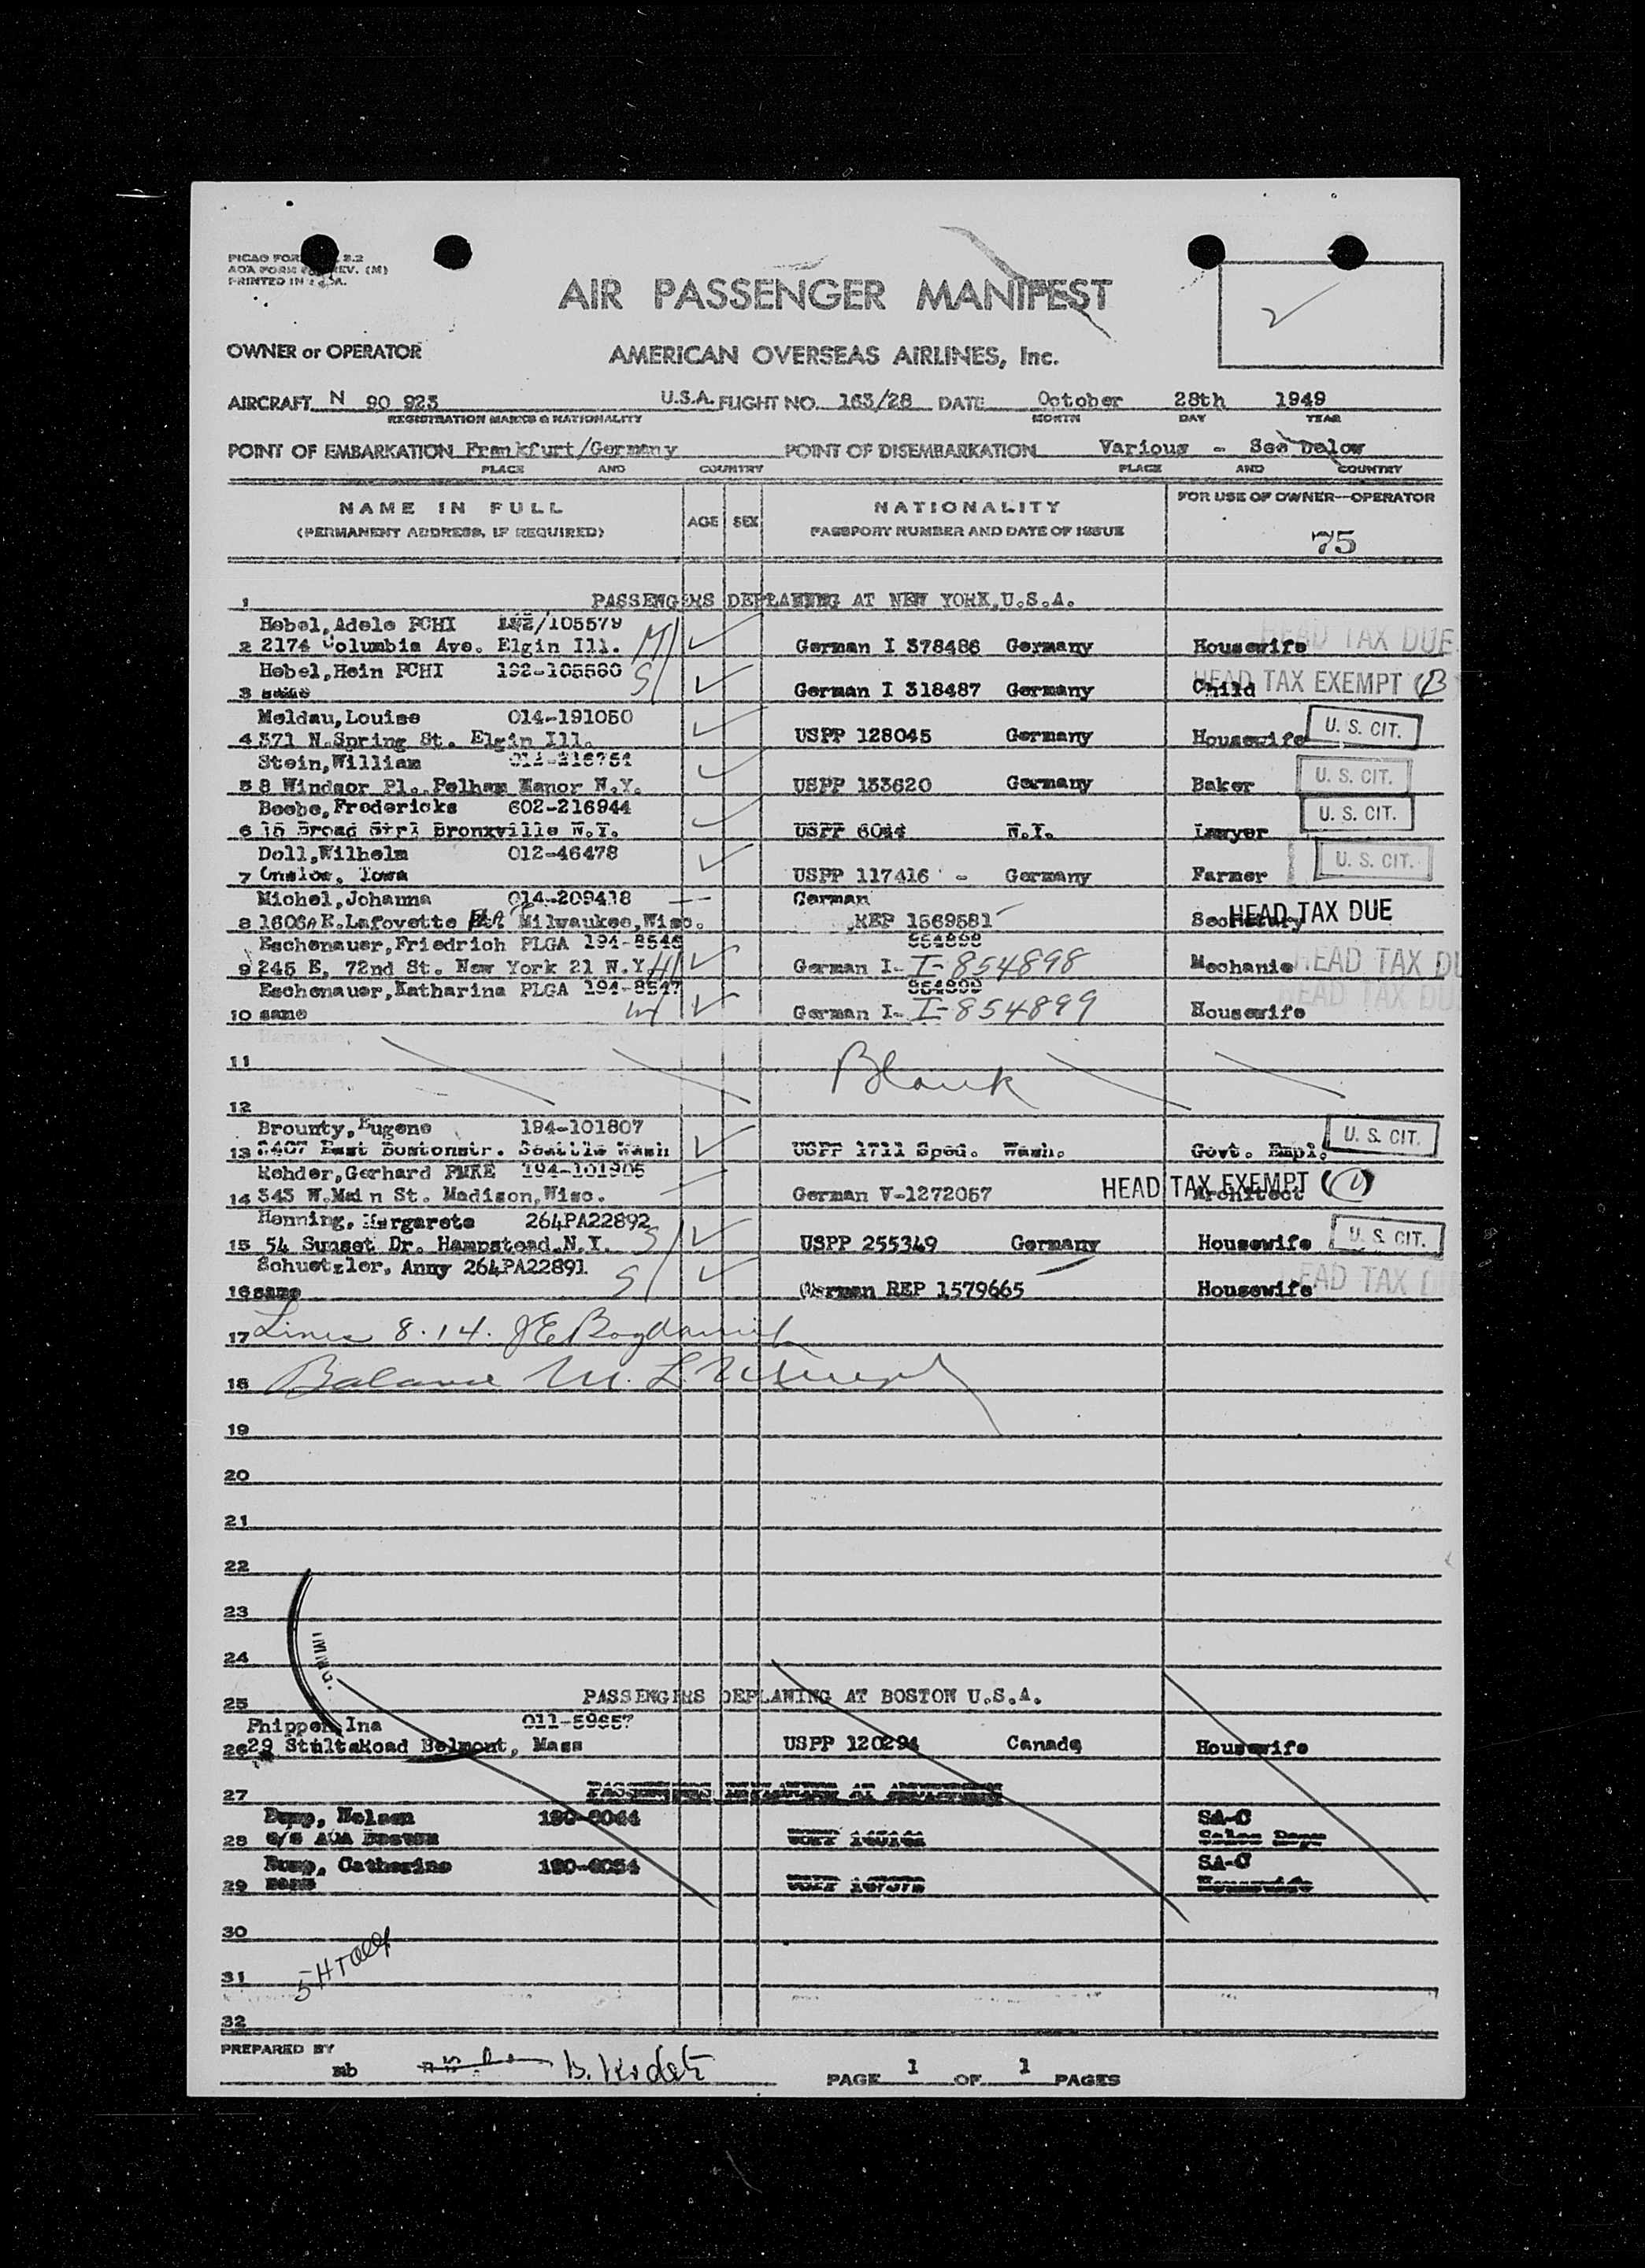 AIR PASSENGER MANIFEST
PRINTED IN
OWNER or OPERATOR
AMERICAN OVERSEAS AIRLINES, Inc.
AIRCRAFT N 90 923 U.S.A. FLIGHT NO. 163/28 DATE October 28th 1949
REGISTRATION MARKS & NATIONALITY MONTH DAY YEAR
POINT OF EMBARKATION Frankfurt/Germany POINT OF DISEMBARKATION Various - See below
PLACE AND COUNTRY PLACE AND COUNTRY
NAME IN FULL AGE SEX NATIONALITY FOR USE OF OWNER-OPERATOR
(PERMANENT ADDRESS, IF REQUIRED) PASSPORT NUMBER AND DATE OF ISSUE 75
1 PASSENGERS DEPLANING AT NEW YORK, U.S.A.
Hebel, Adele PCHI
2 2174 Columbia Ave. Elgin Ill. M German I 378486 Germany Housewife HEAD TAX DUE
Hebel, Hein PCHI 192-105580
3 same S German I 318487 Germany Child HEAD TAX EXEMPT
Meldau, Louise 014-191050
4 371 N.Spring St. Elgin Ill. USPP 128045 Germany Housewife U. S. CIT.
Stein, William
5 8 Windsor Pl. Pelham Manor N.Y. USPP 133620 Germany Baker U. S. CIT.
Beebe, Fredericks 602-216944
6 15 Broad Bronxville N.Y. USPP N.Y. Lawyer U. S. CIT.
Doll, Wilhelm 012-46478
7 Onslow, Iowa USPP 117416 - Germany Farmer U. S. CIT.
Michel, Johanna 014-209418 German
8 1606A E.Lafoyette Milwaukee, Wisc. REP 1569581 Secretary HEAD TAX DUE
Eschenauer, Friedrich PLGA 194-8546 854898
9 245 E. 72nd St. New York 21 N.Y. German I- I-854898 Mechanic HEAD TAX DU
Eschenauer, Katharina PLGA 194-8547 854899
10 same German I- I-854899 Housewife HEAD TAX DU
11 Blank
12
Brounty, Eugene 194-101807
13 East Bostonstr. Seattle Wash USPP 1711 Sped. Wash. Govt. Empl. U. S. CIT.
Rehder, Gerhard PMKE 194-101905
14 343 W.Main St. Madison, Wisc. German V-1272057 Architect HEAD TAX EXEMPT
Henning, Margarete 264PA22892
15 54 Sunset Dr. Hempstead.N.Y. S USPP 255349 Germany Housewife U. S. CIT.
Schuetzler, Anny 264PA22891
16 same S German REP 1579665 Housewife HEAD TAX
17 Lines 8.14.
18 Balance
19
20
21
22
23
24
25 PASSENGERS DEPLANING AT BOSTON U.S.A.
Phippen, Ina 011-59657
26 29 Road Belmont, Mass USPP 120294 Canada Housewife
27
Nelson SA-C
28
Catherine SA-C
29
30
31
32
PREPARED BY
mb
PAGE 1 OF 1 PAGES